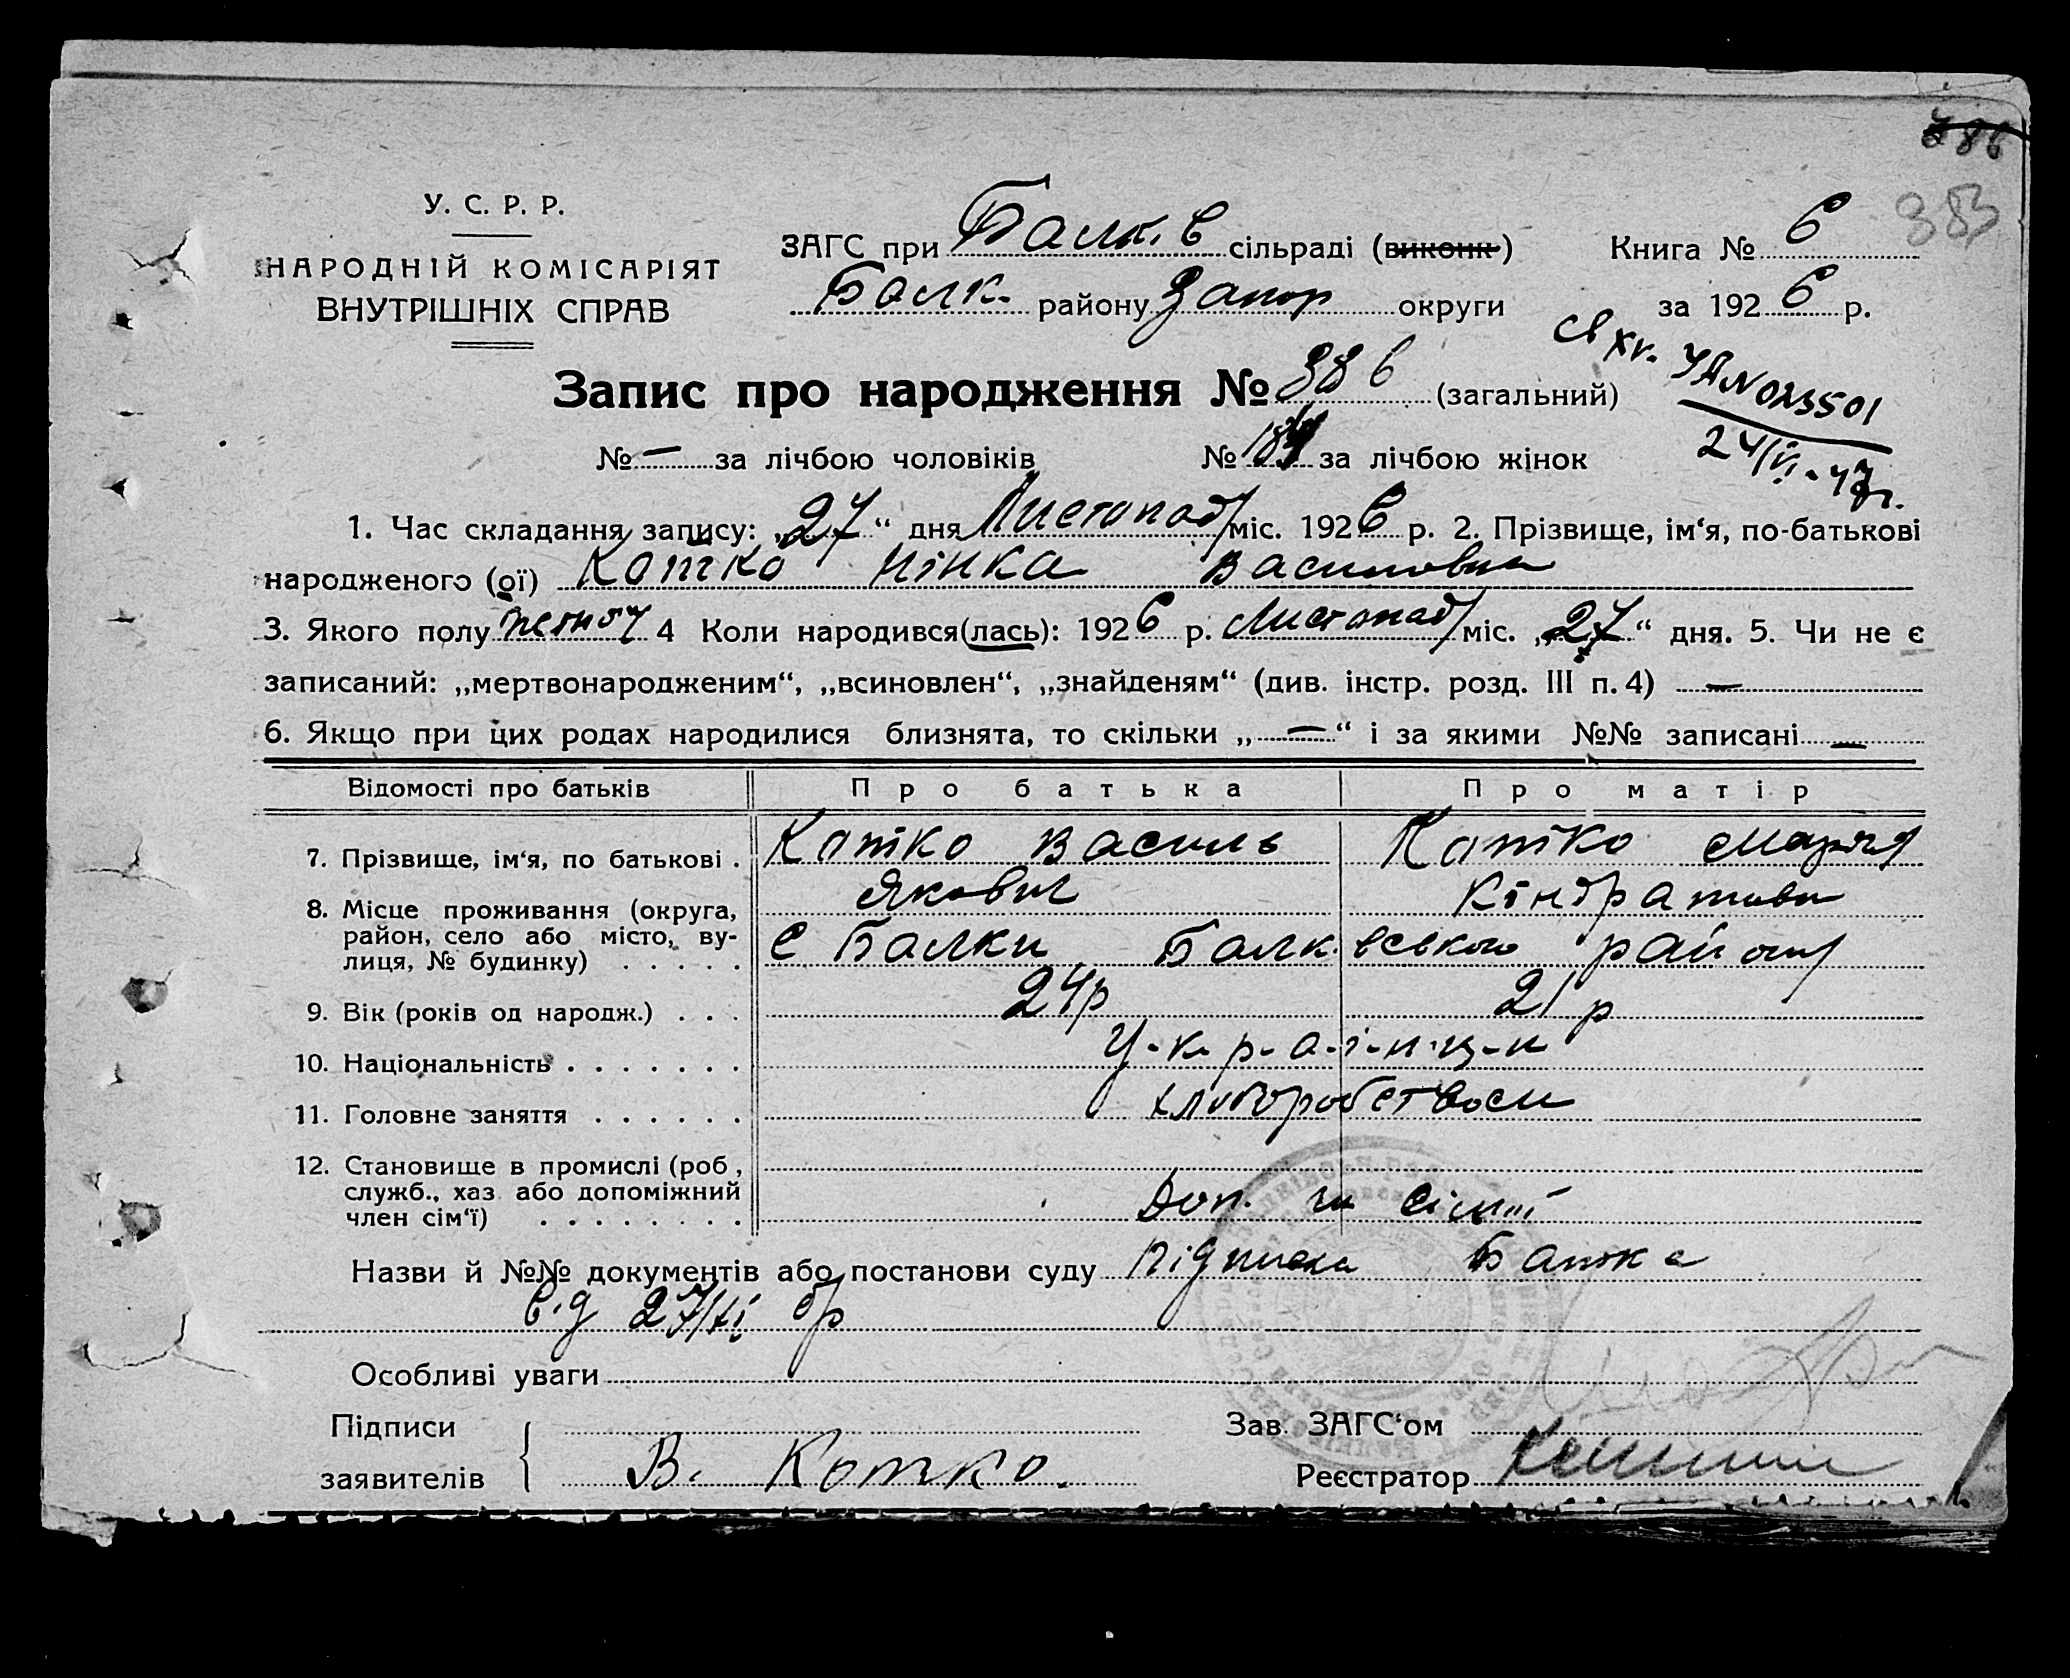 386
383
У. С. Р. Р.
НАРОДНІЙ КОМІСАРІЯТ
ВНУТРІШНІХ СПРАВ
ЗАГС при Балків сільраді (виконк) Книга № 6
Балк. району Запор округи за 1926 р.
св хк. ЧАN 0235501
24/VI-47г.
Запис про народження № 386 (загальний)
№ — за лічбою чоловіків № за лічбою жінок
1. Час складання запису: „27“ дня Листопад міс. 1926 р. 2. Прізвище, ім‘я, по-батькові
народженого (ої) Котко Нінка Василовна
3. Якого полу жіноч 4 Коли народився(лась): 1926 р. Листопад міс. „27“ дня. 5. Чи не є
записаний: „мертвонародженим“, „всиновлен“, „знайденям“ (див. інстр. розд. III п. 4) —
6. Якщо при цих родах народилися близнята, то скільки „—“ і за якими №№ записані —
Відомості про батьків Про батька Про матір
7. Прізвище, ім‘я, по батькові . Котко Василь Котко Марія
Якович Кіндратовн
8. Місце проживання (округа,
район, село або місто, ву-
лиця, № будинку) . . . . . С Балки Балківського району
9. Вік (років од народж.) . . . 24р 21р
10. Національність . . . . . . . У-к-р-а-ї-н-ц-и
11. Головне заняття . . . . . . хліборобством
12. Становище в промислі (роб,
служб., хаз або допоміжний
член сім‘ї) . . . . . . . . Доп. чл сімї
Назви й №№ документів або постанови суду Підписка Батка
від 27/XI бр
Особливі уваги
Підписи Зав. ЗАГС‘ом
заявителів В. Котко. Реєстратор